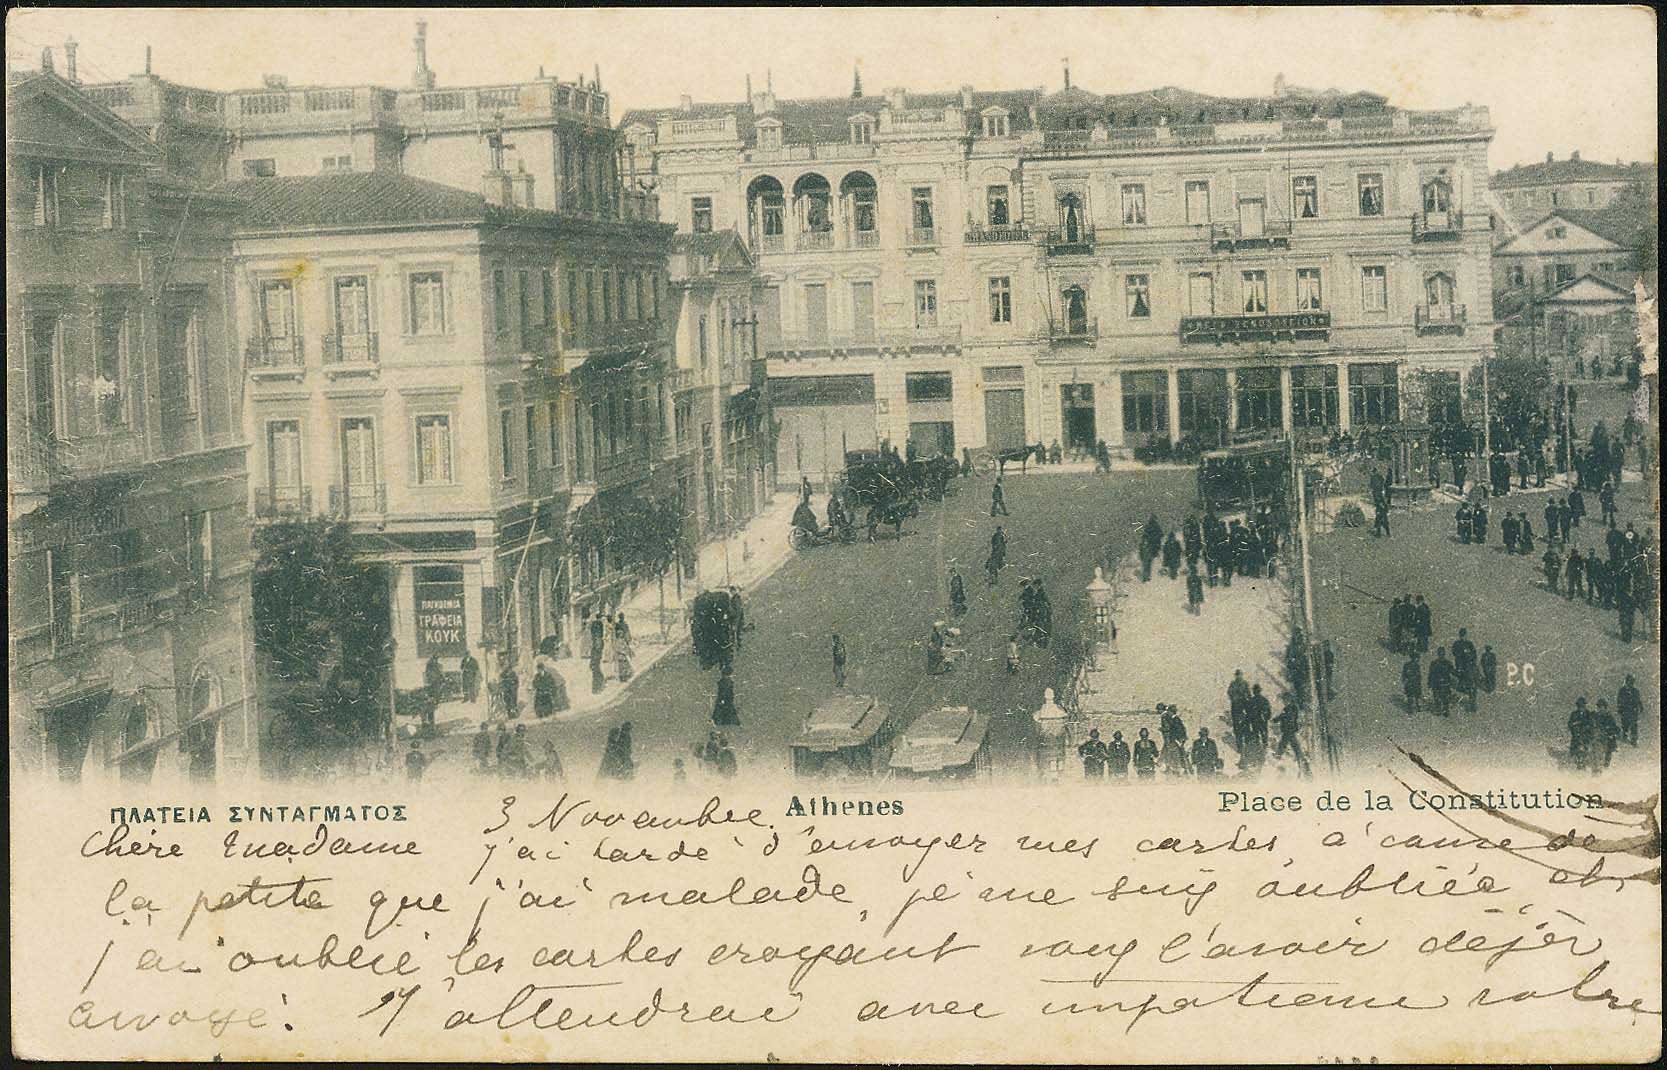 GRAND HOTEL
ΠΑΓΚΟΣΜΙΑ
ΓΡΑΦΕΙΑ
ΚΟΥΚ
P.C
ΠΛΑΤΕΙΑ ΣΥΝΤΑΓΜΑΤΟΣ
Athenes
Place de la Constitution
3 Novembre.
Chère Madame j'ai tardé d'envoyer mes cartes à cause de
la petite que j'ai malade, je me suis oubliée et
j'ai oublié les cartes croyant vous l'avoir déjà
envoyé. J'attendrai avec impatience votre